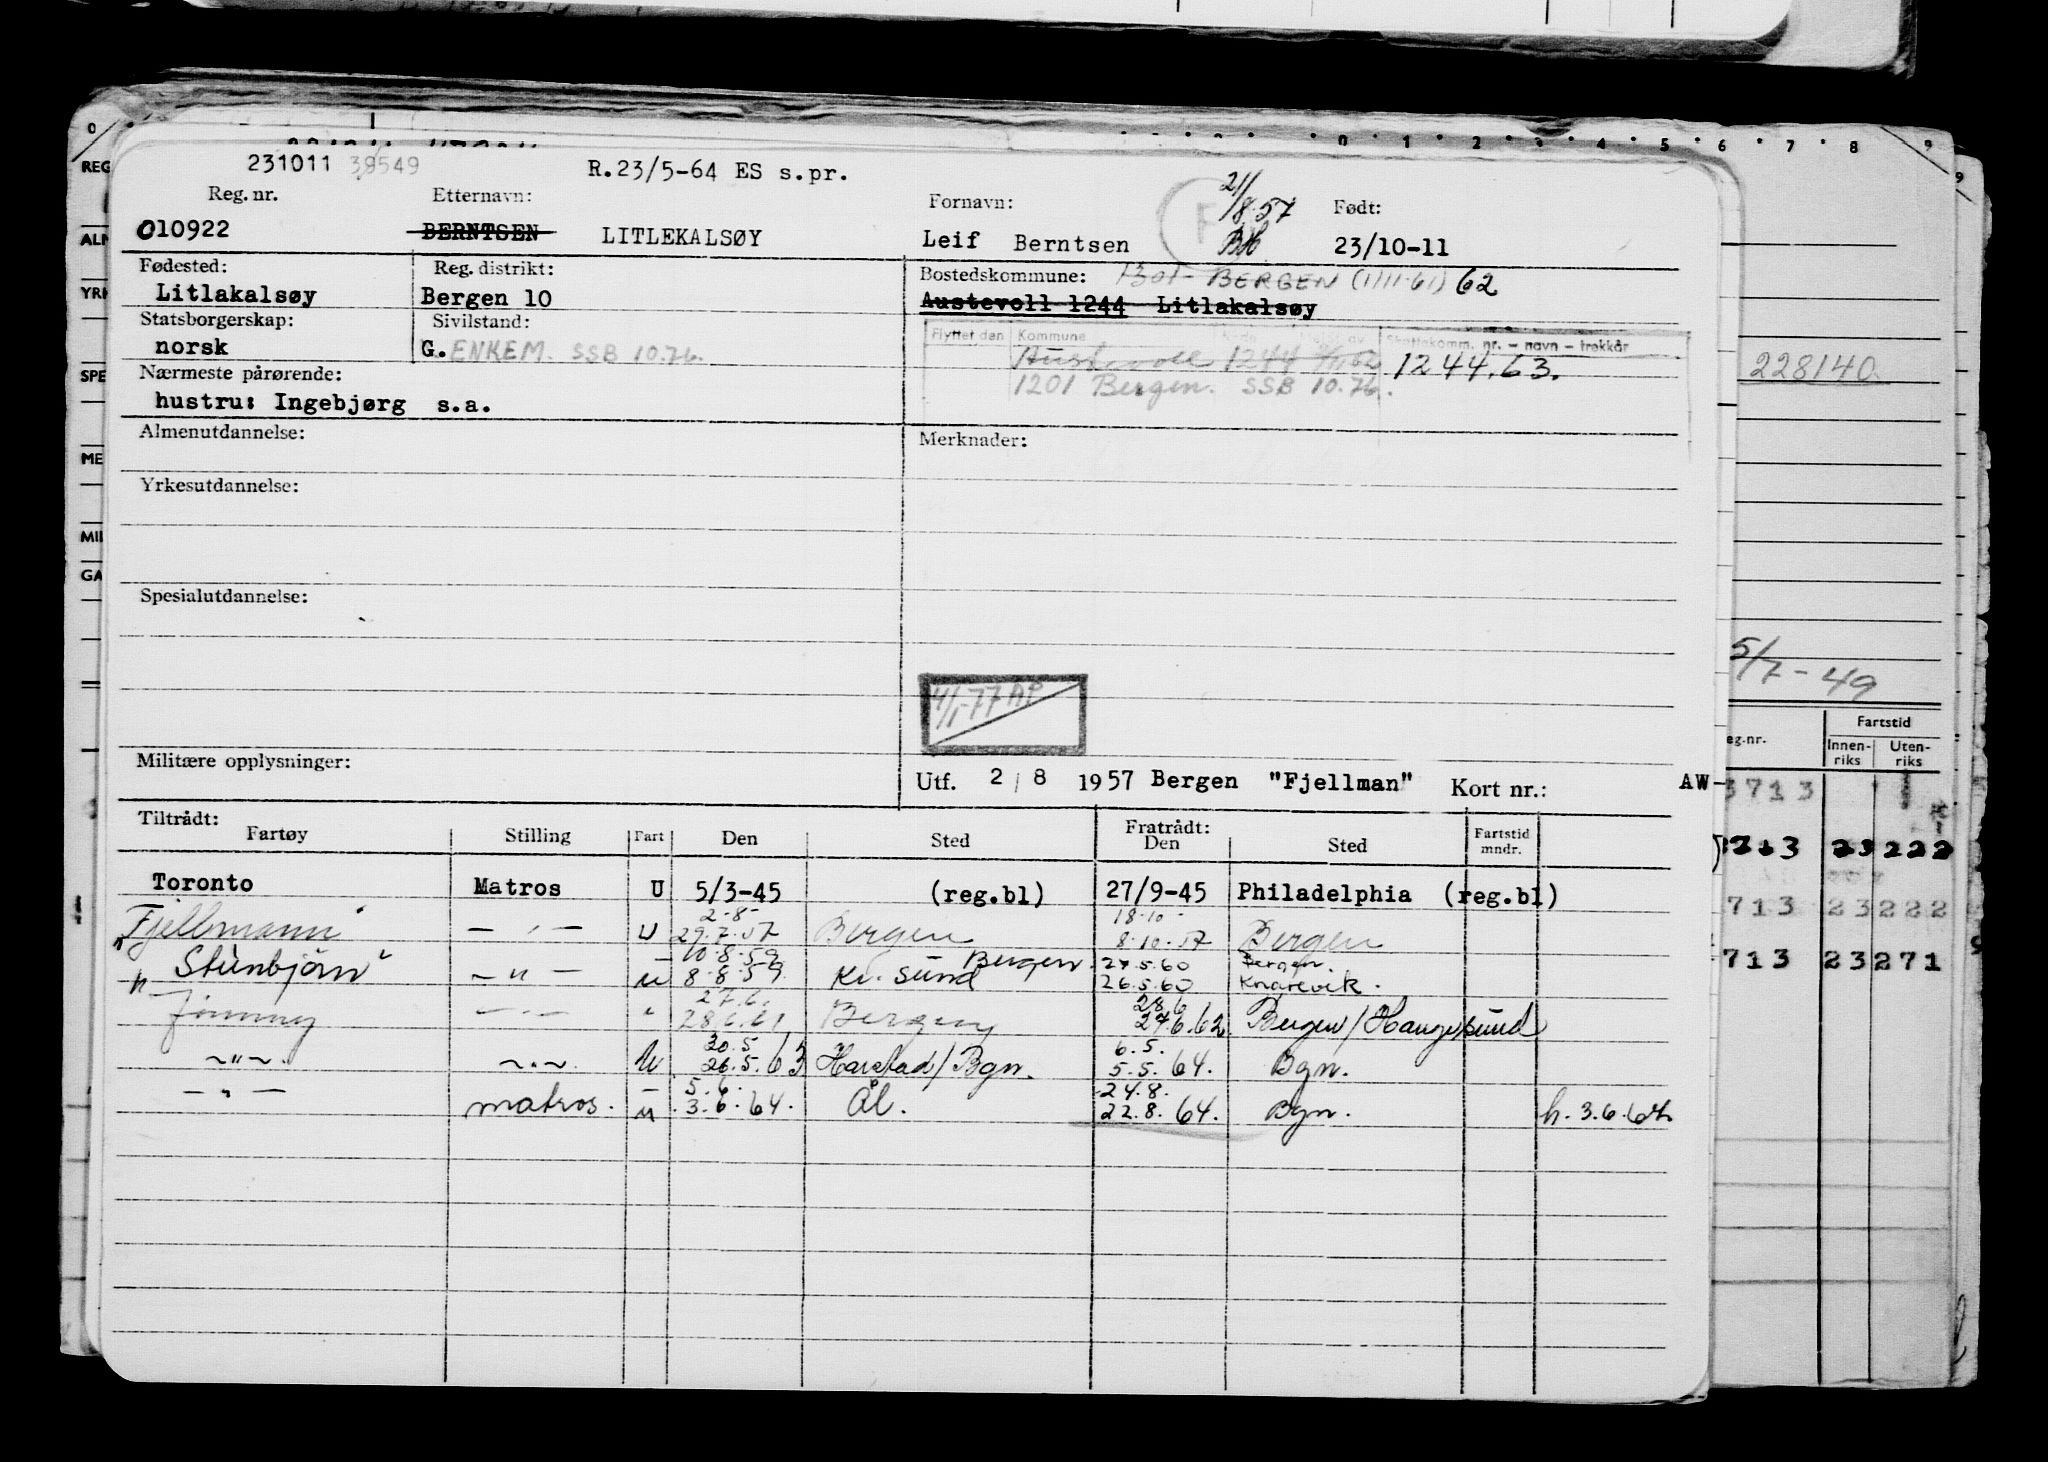 0 1 2 3 4 5 6 7 8 9
REG
ALM
YRK
SPE
ME
MIL
GA
231011 39549 R.23/5-64 ES s.pr.
Reg. nr. Etternavn: Fornavn: 21/8.57 Født:
010922 BERNTSEN LITLEKALSØY Leif Berntsen BH 23/10-11
Fødested: Reg. distrikt: Bostedskommune: 1301 - BERGEN (1/11-61) 62
Litlakalsøy Bergen 10 Austevoll 1244 Litlakalsøy
Statsborgerskap: Sivilstand: Flyttet den Kommune Skattekomm. nr. - navn - trekkår
norsk G. ENKEM. SSB 10.76. Austevoll 1244 1244.63.
Nærmeste pårørende: 1201 Bergen. SSB 10.76.
hustru: Ingebjørg s.a.
Almenutdannelse: Merknader:
Yrkesutdannelse:
Spesialutdannelse:
4/1-77 AP
Militære opplysninger: Utf. 2 / 8 1957 Bergen "Fjellman" Kort nr.: AW-
Tiltrådt: Fratrådt:
Fartøy Stilling Fart Den Sted Den Sted Fartstid mndr.
Toronto Matros U 5/3-45 (reg.bl) 27/9-45 Philadelphia (reg.bl)
2-8- 18.10-
Fjellmann — " — U 29.7.57 Bergen 8.10.57 Bergen
10.8.59 Bergen. 27.5.60 Bergen.
"Steinbjörn" — " — u 8.8.59 Kr. sund 26.5.60 Knarevik.
27.6. 28.6
"Jimmy — " — " 28.6.61 Bergen 27.6.62 Bergen/Haugesund
30.5 6.5.
~"~. ~"~ U 26.5.63 Harstad/Bgn. 5.5.64. Bgn.
5.6. 24.8.
— " — matros. u 3.6.64. Ål. 22.8.64. Bgn. h. 3.6.64.
228140
5/7-49
eg.nr. Fartstid
Innen-riks Uten-riks
3713
3713 23 222
713 23 222
713 23 271